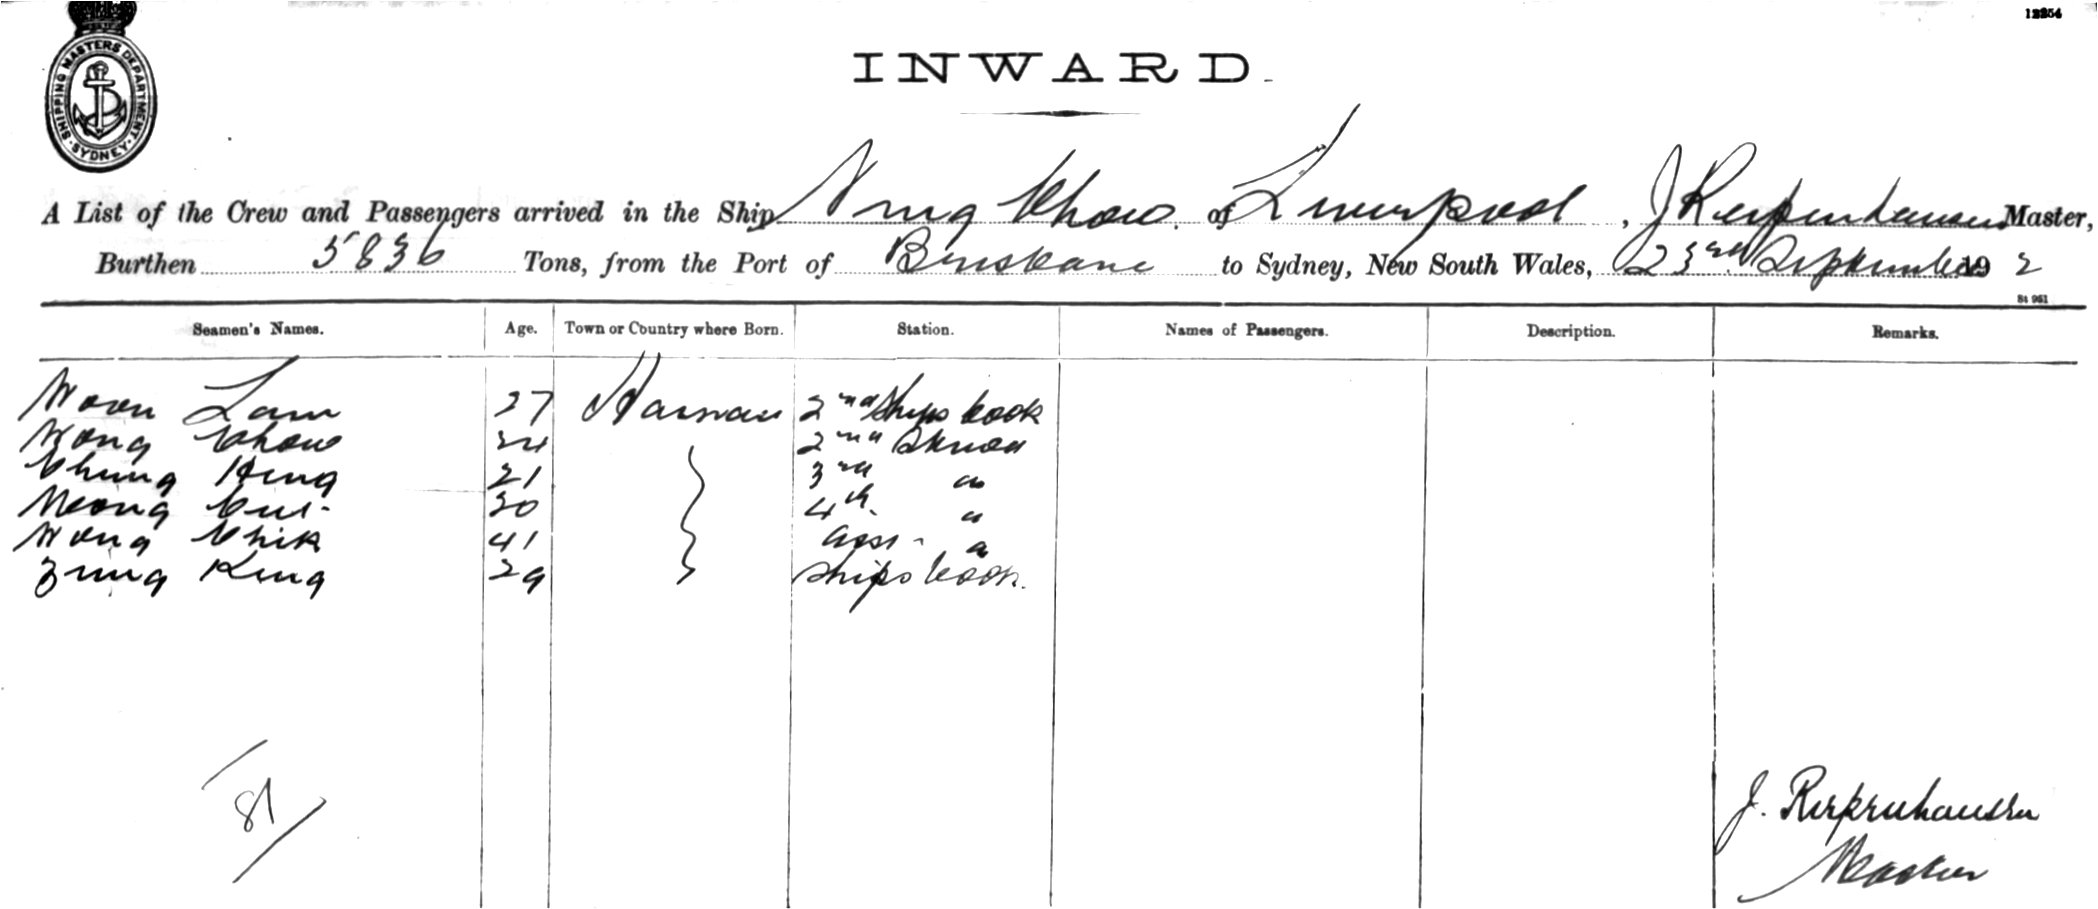 12254
SHIPPING MASTERS DEPARTMENT
SYDNEY
INWARD
A List of the Crew and Passengers arrived in the Ship Ning Chow of Liverpool, J Reepenhausen Master,
Burthen 5836 Tons, from the Port of Brisbane to Sydney, New South Wales, 23rd September 190 2
84 951
Seamen's Names. Age. Town or Country where Born. Station. Names of Passengers. Description. Remarks.
Woon Lam 27 Hainan 2nd Ships Cook
Wong Chow 24 2nd Stewd
Chung Hing 21 3rd "
Meong Cui 30 4th "
Wong Chik 41 Asst "
King 29 Ships Cook.
81
J. Reepenhausen
Master